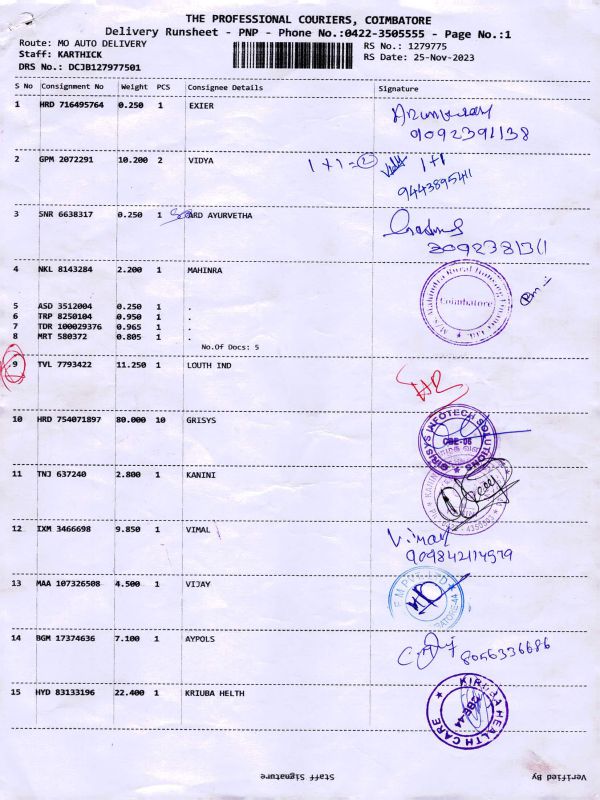 THE PROFESSIONAL COURIERS, COIMBATORE
Delivery Runsheet - PNP - Phone No.:0422-3505555 - Page No.:1
Route: MO AUTO DELIVERY
RS No.: 1279775
Staff: KARTHICK
RS Date: 25-Nov-2023
DRS No.: DCJB127977501
S No Consignment No Weight PCS Consignee Details Signature
1 HRD 716495764 0.250 1 EXIER
9092391138
2 GPM 2072291 10.200 2 VIDYA 1+1=2 1+1
9443895411
3 SNR 6638317 0.250 1 ARD AYURVETHA
4 NKL 8143284 2.200 1 MAHINRA
Coimbatore
5 ASD 3512004 0.250 1 .
6 TRP 8250104 0.950 1 .
7 TDR 100029376 0.965 1 .
8 MRT 580372 0.805 1 .
No.Of Docs: 5
9 TVL 7793422 11.250 1 LOUTH IND
10 HRD 754071897 80.000 10 GRISYS
GRISYS INFOTECH SOLUTIONS
CBE-06
11 TNJ 637240 2.800 1 KANINI
12 IXM 3466698 9.850 1 VIMAL
13 MAA 107326508 4.500 1 VIJAY
14 BGM 17374636 7.100 1 AYPOLS
8056336686
15 HYD 83133196 22.400 1 KRIUBA HELTH
KIRUBA HEALTH CARE
CBE-44
Staff Signature
Verified By